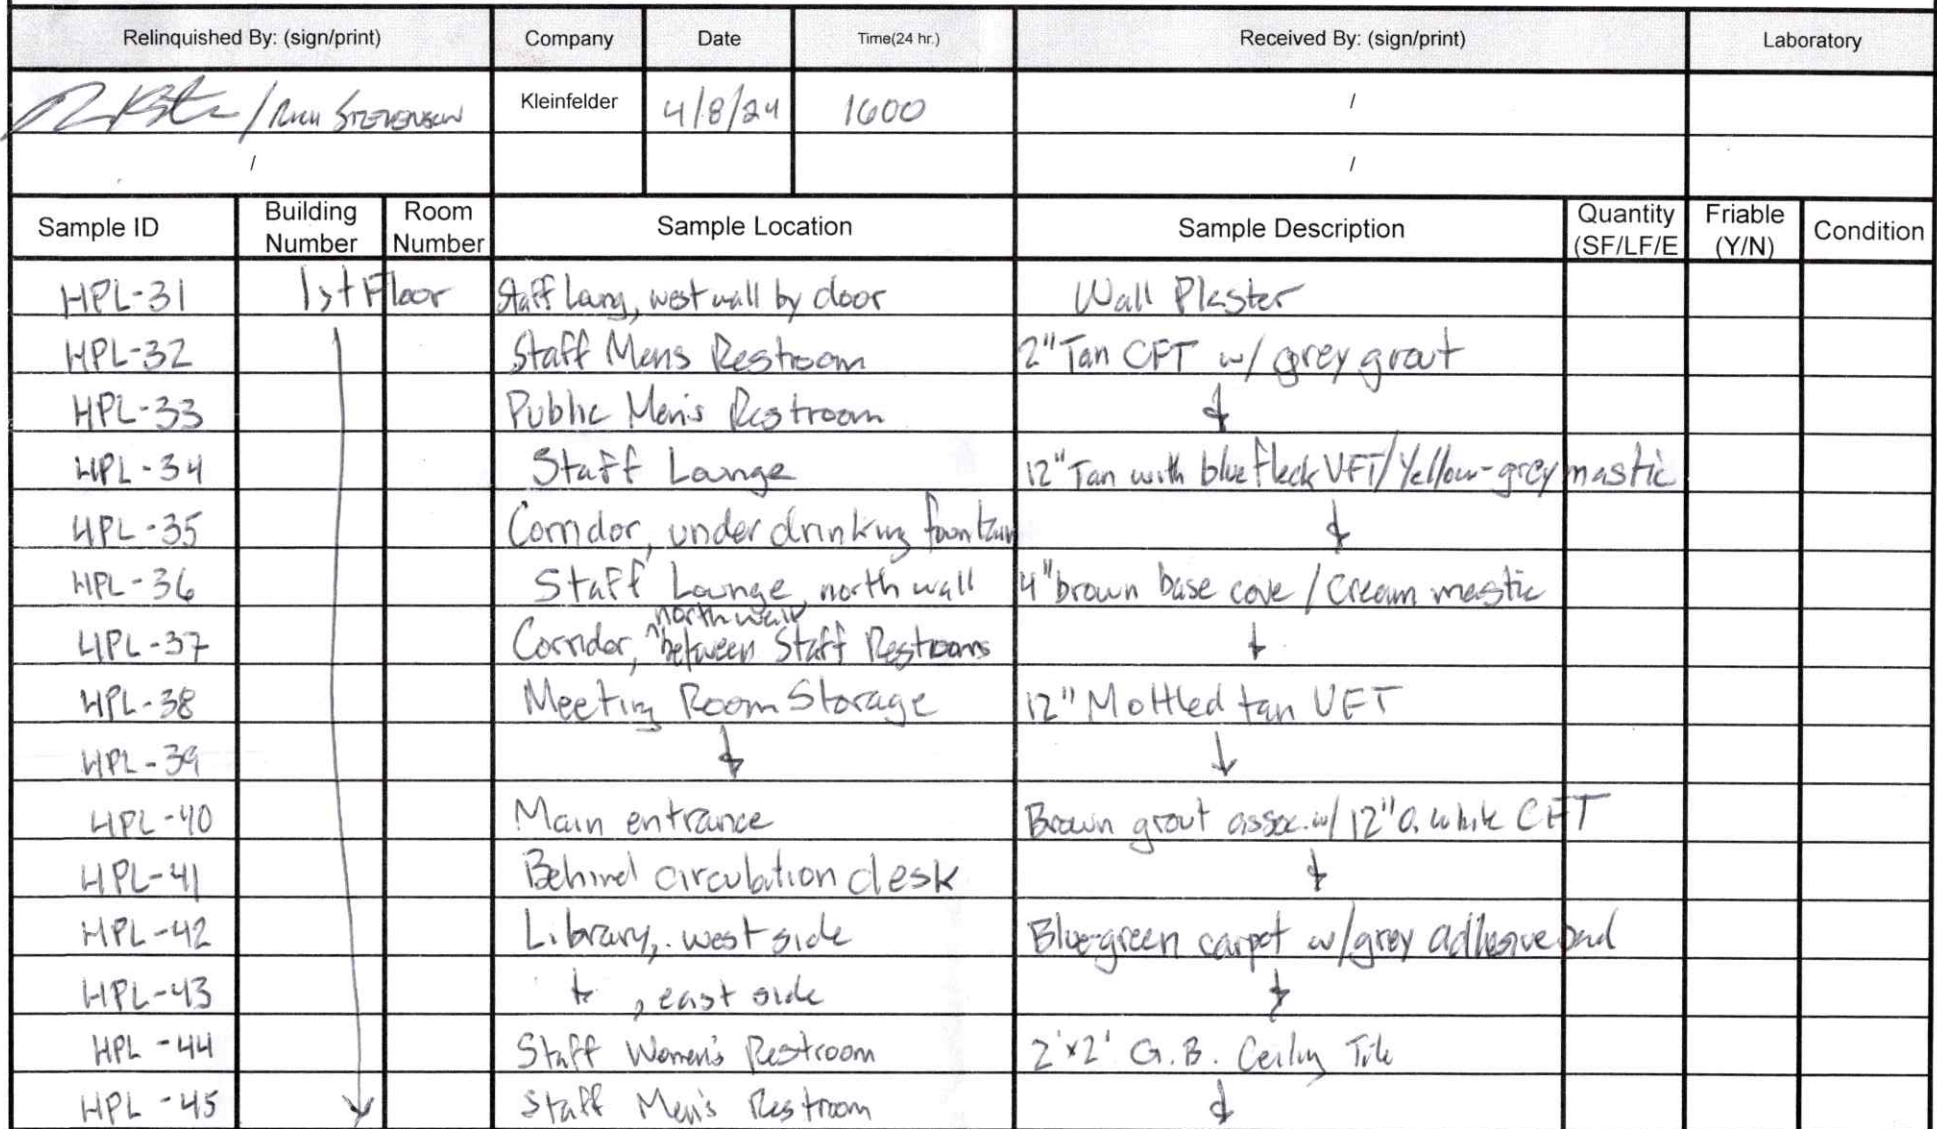 Relinquished By: (sign/print) Company Date Time(24 hr.) Received By: (sign/print) Laboratory
/ Rich STEVENSON Kleinfelder 4/8/24 1600 /
/ /
Sample ID Building Number Room Number Sample Location Sample Description Quantity (SF/LF/E Friable (Y/N) Condition
HPL-31 1st Floor Staff Lang, west wall by door Wall Plaster
HPL-32 Staff Mens Restroom 2" Tan CFT w/ grey grout
HPL-33 Public Men's Restroom ↓
HPL-34 Staff Lounge 12" Tan with blue fleck VFT/Yellow-grey mastic
HPL-35 Corridor, under drinking fountain ↓
HPL-36 Staff Lounge, north wall 4" brown base cove / Cream mastic
HPL-37 Corridor, ^north wall between Staff Restrooms ↓
HPL-38 Meeting Room Storage 12" Mottled tan VFT
HPL-39 ↓ ↓
HPL-40 Main entrance Brown grout assoc. w/ 12" O. white CFT
HPL-41 Behind circulation desk ↓
HPL-42 Library, west side Blue-green carpet w/grey adhesive pad
HPL-43 ↓, east side ↓
HPL-44 Staff Women's Restroom 2'x2' G.B. Ceiling Tile
HPL-45 Staff Men's Restroom ↓